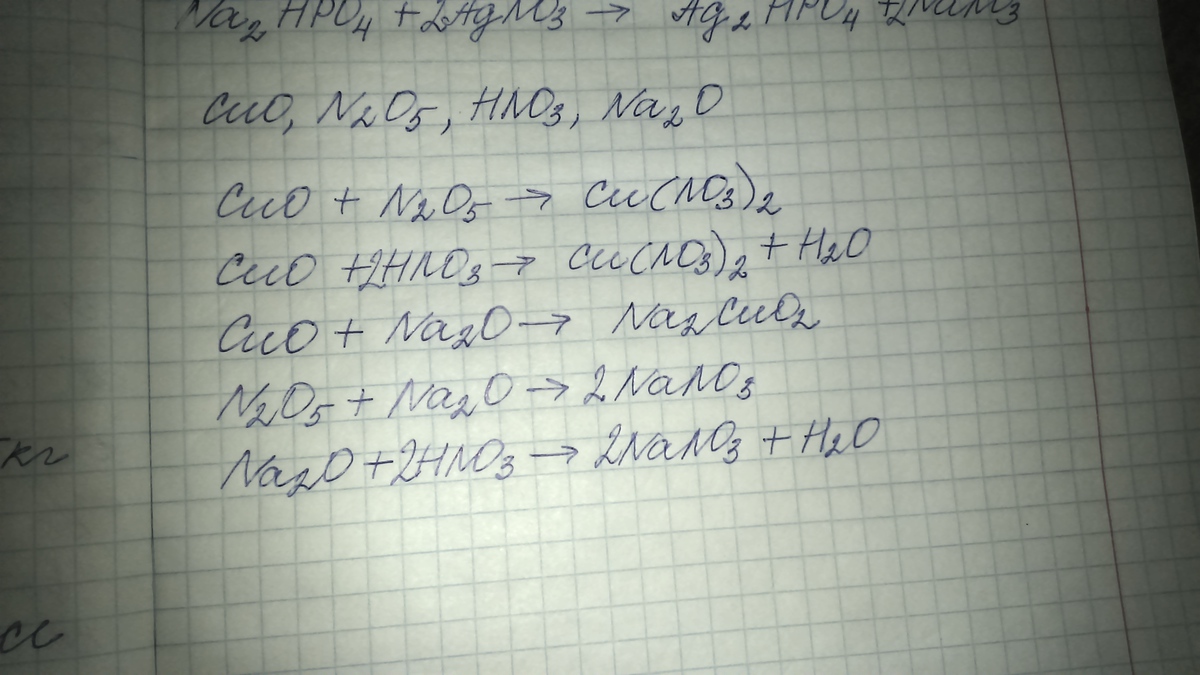 Na2HPO4 + 2AgNO3 → Ag2HPO4 + 2NaNO3
CuO, N2O5, HNO3, Na2O
CuO + N2O5 → Cu(NO3)2
CuO + 2HNO3 → Cu(NO3)2 + H2O
CuO + Na2O → Na2CuO2
N2O5 + Na2O → 2NaNO3
Na2O + 2HNO3 → 2NaNO3 + H2O
кг